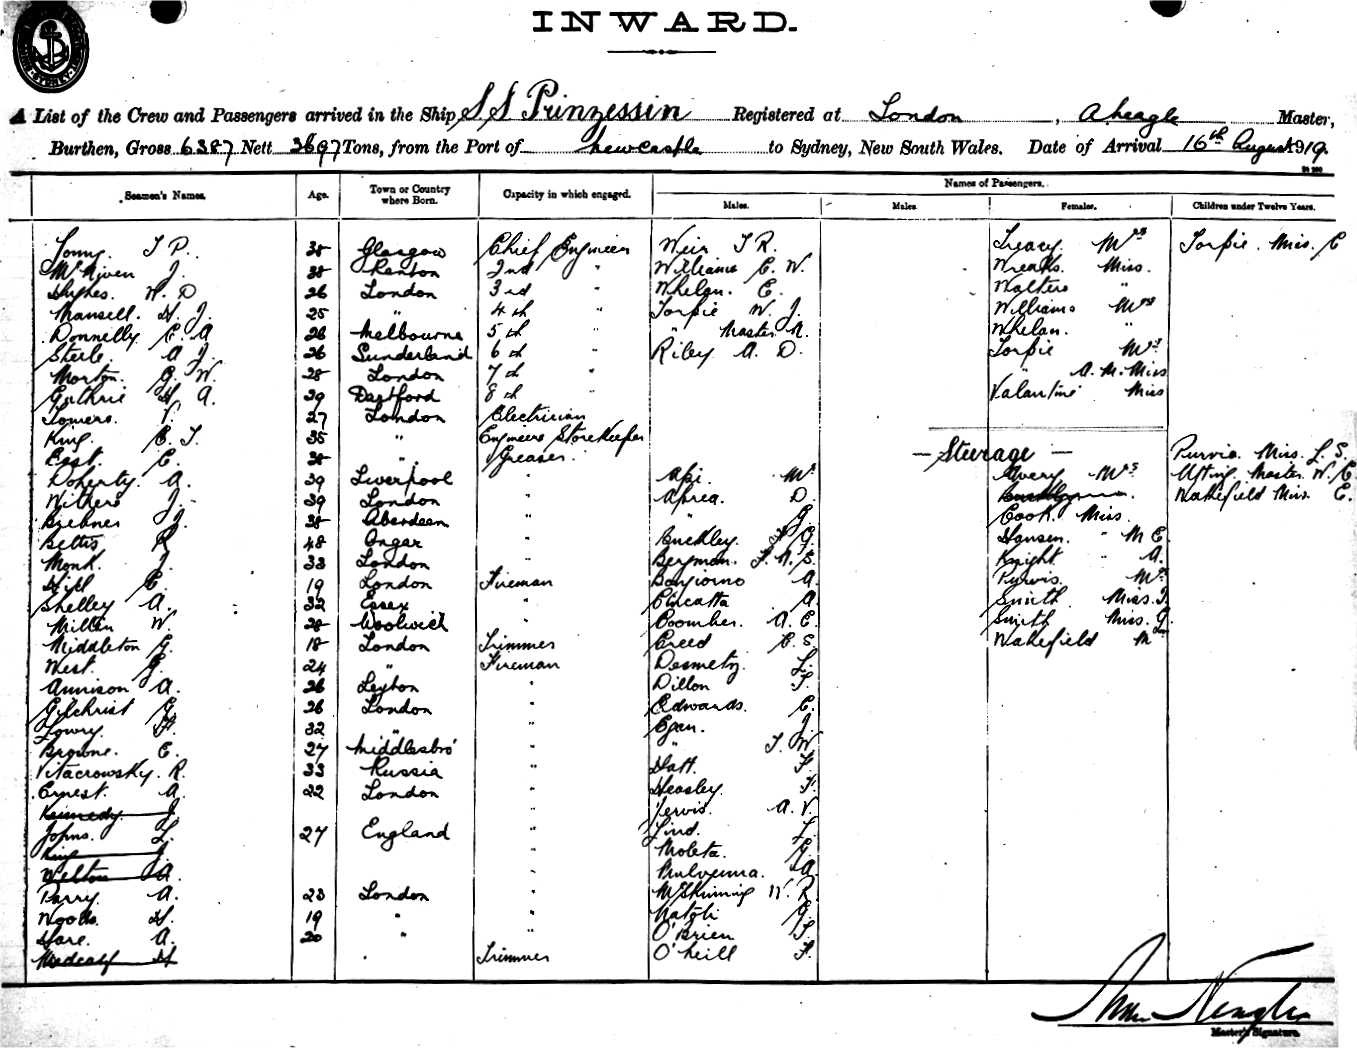 INWARD.
SYDNEY
A List of the Crew and Passengers arrived in the Ship S S Prinzessin Registered at London, Master,
Burthen, Gross 6387 Nett 3697 Tons, from the Port of Newcastle to Sydney, New South Wales. Date of Arrival 16th August 1919.
Names of Passengers.
Seamen's Names. Age. Town or Country where Born. Capacity in which engaged. Males. Males. Females. Children under Twelve Years.
T P. 38 Glasgow Chief Engineer Weir T R. Treacy Mrs Torpie Miss. C
McNiven J. 38 Renton 2nd " Williams C. W. Wreaks Miss.
Hughes. W. D 26 London 3rd " Whelan. C. Walters "
Mansell. H. J. 25 " 4th " Torpie W. J. Williams Mrs
Donnelly C. A 26 Melbourne 5th " " Master N. Whelan. "
Steele A J. 26 Sunderland 6th " Riley A. D. Torpie Mrs
Morton. G. W. 28 London 7th " " A. M. Miss
Guthrie H A. 29 Dartford 8th " Valantine Miss
Somers. V. 27 London Electrician
King. C. T. 35 " Engineers Storekeeper
East. C. 38 " Greaser. — Steerage — Purvis Miss. L. S.
Doherty A. 39 Liverpool " Mr Avery Mrs Master. W. C.
Withers J. 39 London " Aprea. D. Wakefield Miss C.
Brebner J. 38 Aberdeen " " G. Cook. Miss.
Bettis R 48 Ongar " Buckley. F. G. Hansen. " M E.
Monk. J. 33 London " Bergman. F. A. E. Knight " A.
Hill C. 19 London Fireman Bongiorno A. Purvis. Mrs
Shelley A. 32 Essex " Cincatta A. Smith Miss. J.
Millen W. 28 Woolwich " Coomber. A. E. Smith Miss. G.
Middleton G. 18 London Trimmer Creed C. S. Wakefield Mrs
West. G. 24 " Fireman Desmety. L.
Annison A. 26 Leyton " Dillon T.
Gilchrist G. 26 London " Edwards. C.
Lowry H. 32 " " Egan. J.
Browne. C. 27 Middlesbro' " " T. W
R. 33 Russia " Hatt. F.
Ernest. A. 22 London " Heasley. F.
Kennedy J. " Jervis. A. V.
Johns. L. 27 England " Lind. L.
King J. " Moleta. G.
Welton A. " Mulvenna. A.
Parry. A. 23 London " McSkimming W. R.
Woods. H. 19 " " Natoli G.
Hare. A. 20 " " O'Brien T.
Medcalf H Trimmer O'Neill F.
Master's Signature.